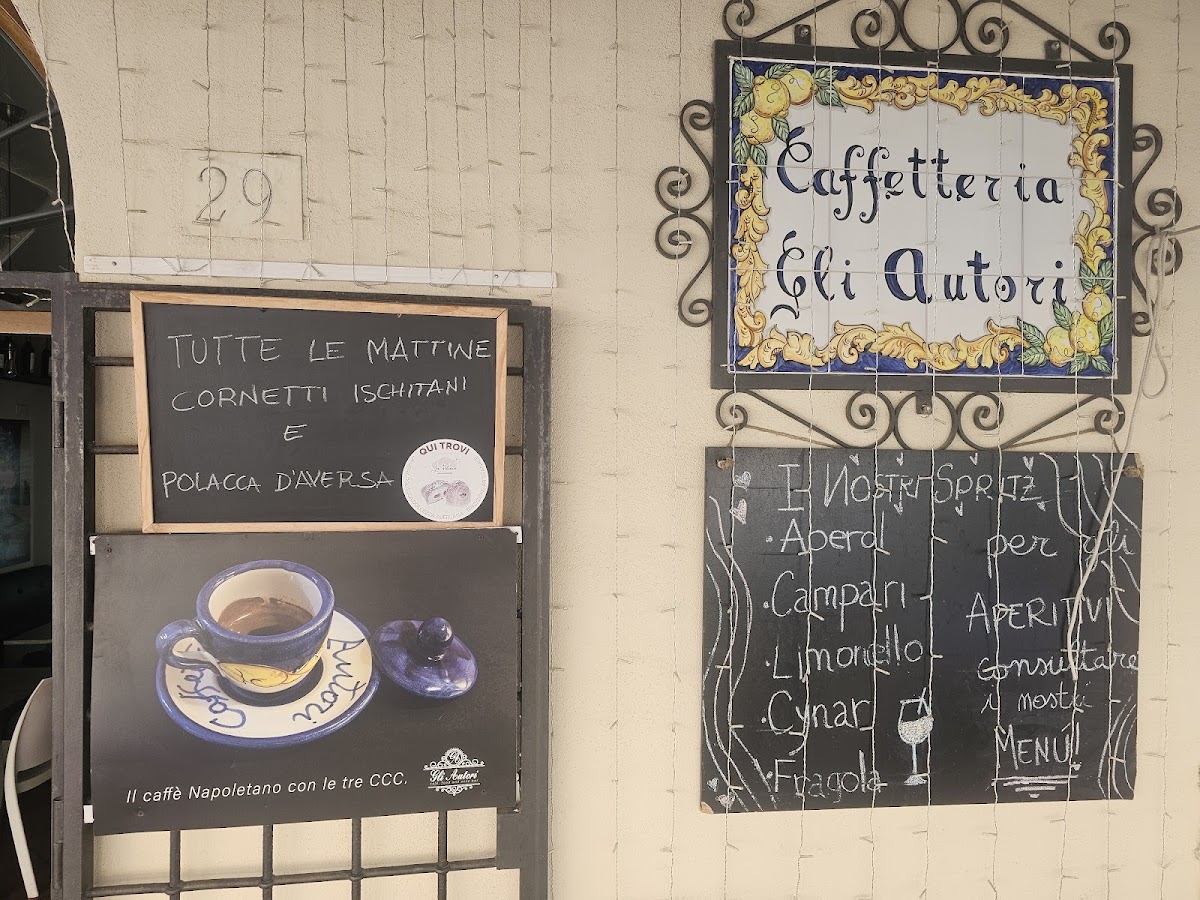 29
Caffetteria
Gli Autori
TUTTE LE MATTINE
CORNETTI ISCHITANI
E
POLACCA D'AVERSA
QUI TROVI
Autori
Caffè
Il caffè Napoletano con le tre CCC.
Gli Autori
I NOSTRI SPRITZ
• Aperol
• Campari
• Limoncello
• Cynar
• Fragola
per gli
APERITIVI
consultare
i nostri
MENÚ!